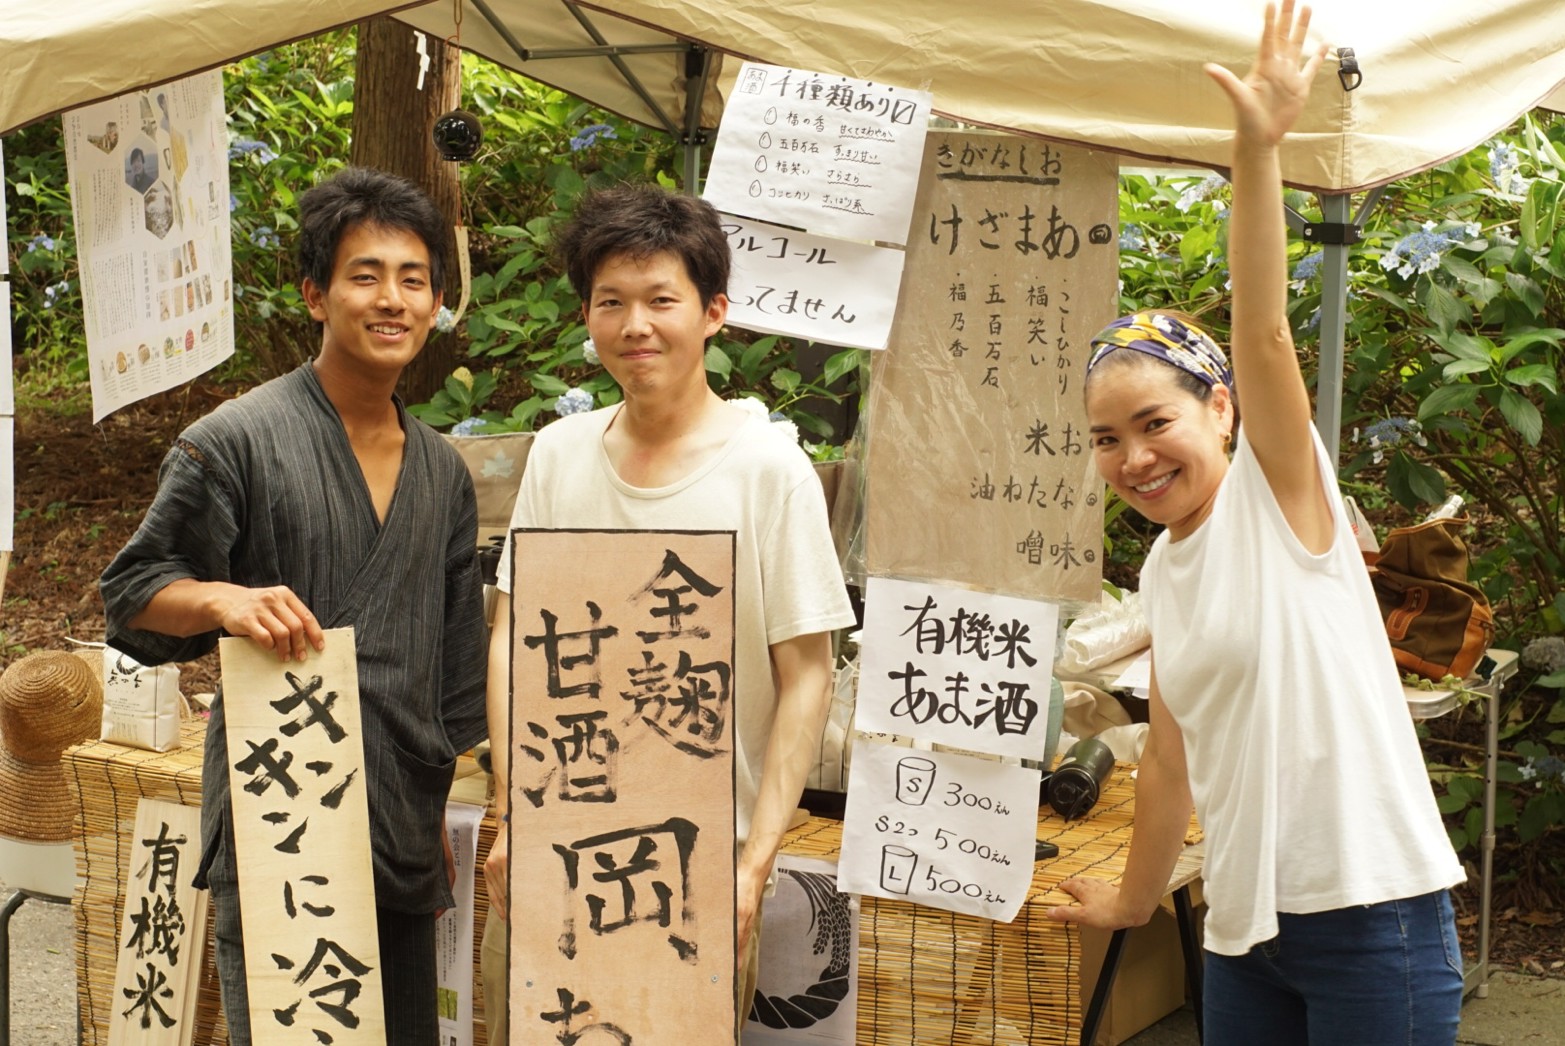 十種類あり
福の香 甘くてさわやか
五百万石 すっきり甘い
福笑い さらさら
コシヒカリ さっぱり系
アルコール
ってません
きがなしお
けざまあ
・こしひかり
・福笑い
・五百万石
・福乃香
米お
油ねたな
噌味
有機米
あま酒
S 300えん
S2つ 500えん
L 500えん
全麹
甘酒
岡
キンキンに冷
有機米